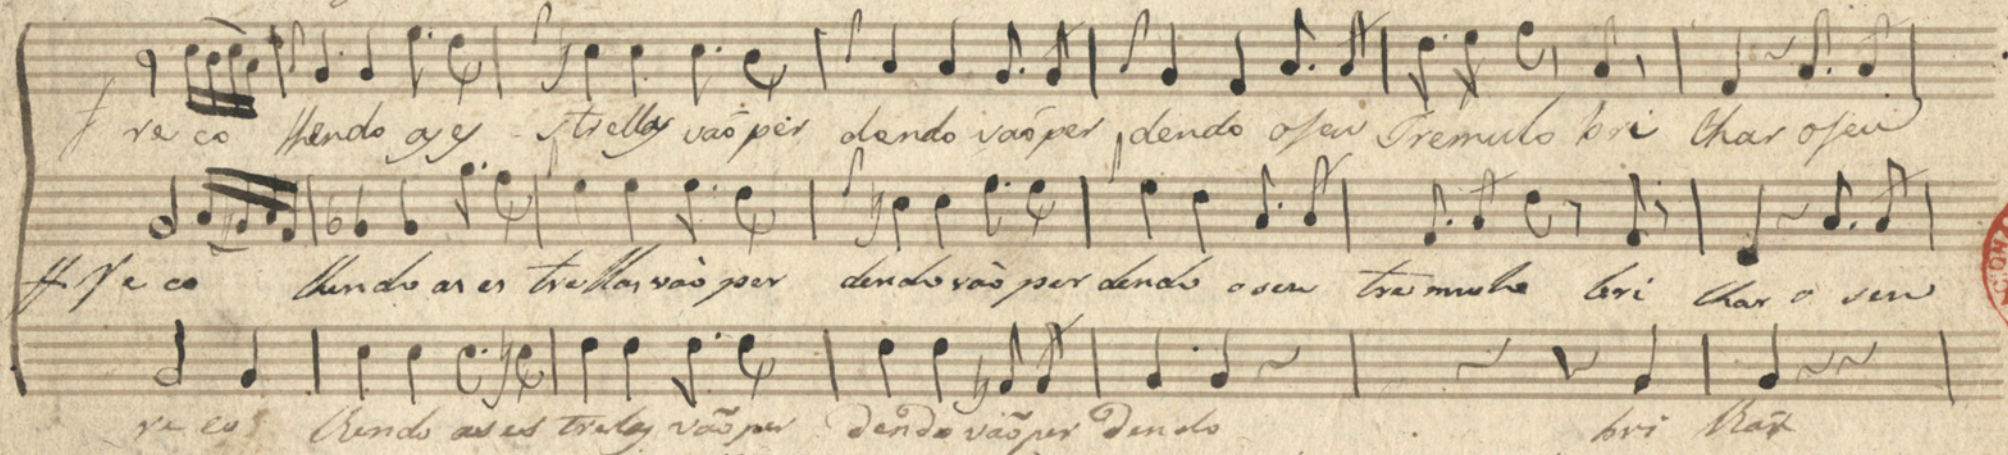 re co lhendo as es - strellas vaõ per dendo vaõ per dendo o seu Tremulo bri lhar o seu
Re co lhendo as es trellas vão per dendo vão per dendo o seu tremulo bri lhar o seu
re co lhendo as es trelas vão per dendo vão per dendo bri lhar